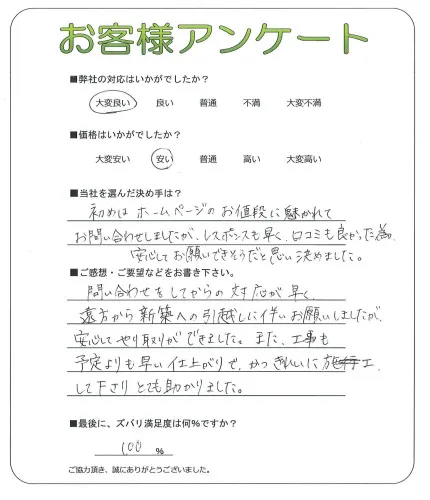 お客様アンケート
■弊社の対応はいかがでしたか？
大変良い 良い 普通 不満 大変不満
■価格はいかがでしたか？
大変安い 安い 普通 高い 大変高い
■当社を選んだ決め手は？
初めは ホームページの お値段に魅かれて
お問い合わせしましたが、レスポンスも早く、口コミも良かった為、
安心してお願いできそうだと思い決めました。
■ご感想・ご要望などをお書き下さい。
問い合わせをしてからの対応が早く、
遠方から新築への引越しに伴いお願いしましたが、
安心してやり取りができました。また、工事も
予定よりも早い仕上がりで、かつきれいに施工
して下さりとても助かりました。
■最後に、ズバリ満足度は何%ですか？
100 %
ご協力頂き、誠にありがとうございました。